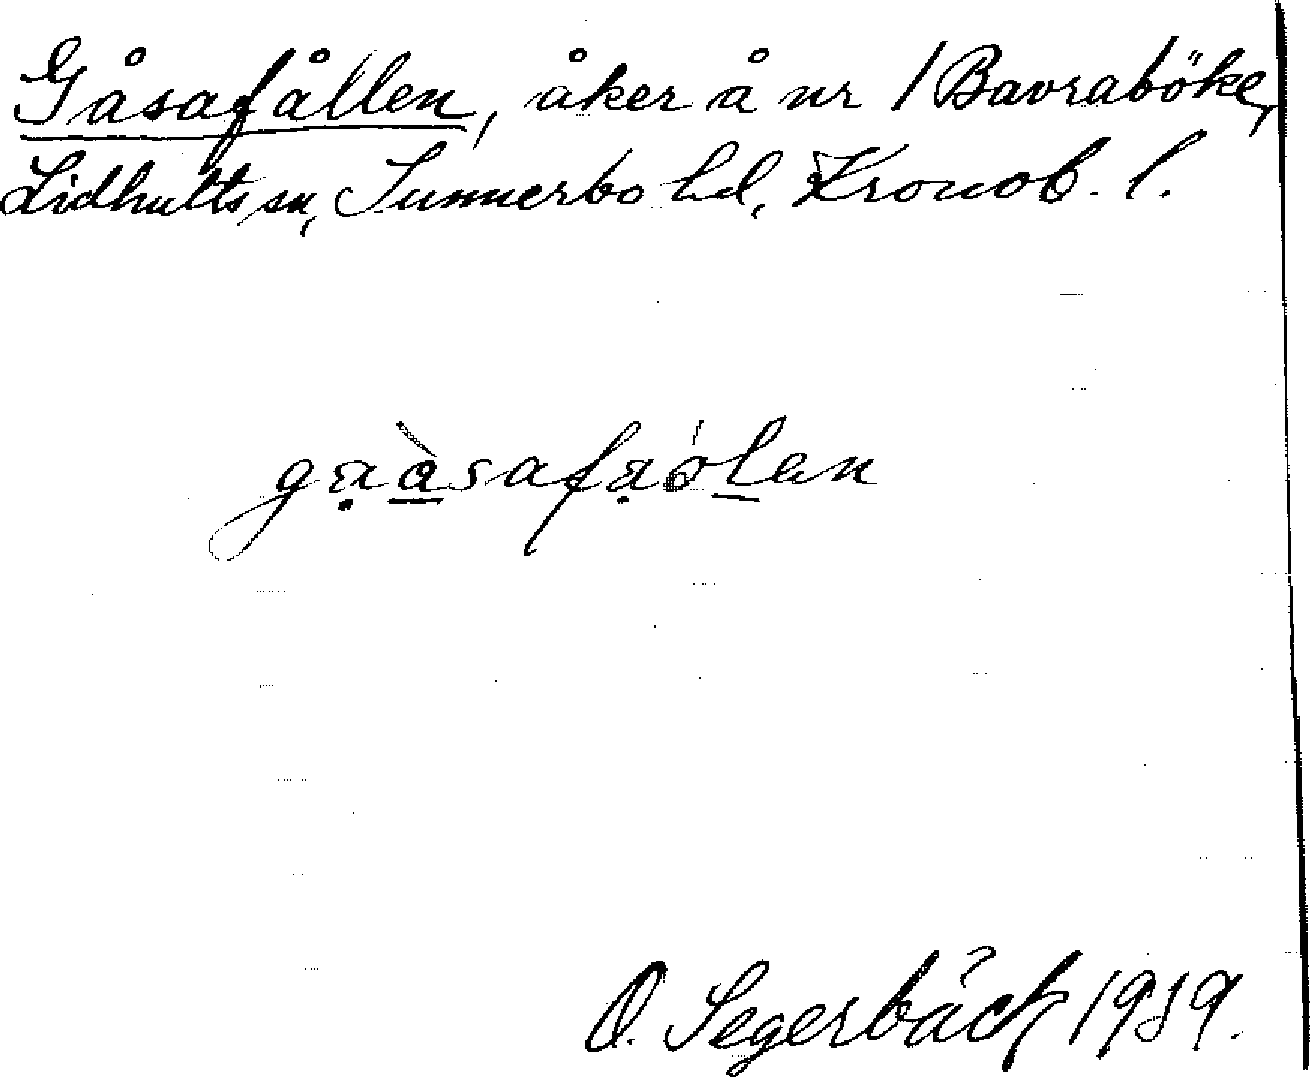 Gåsafållen, åker å nr 1 Bavraböke,
Lidhults sn, Sunnerbo hd, Kronob. l.
gaàsafaólen
O. Segerbäck 1939.